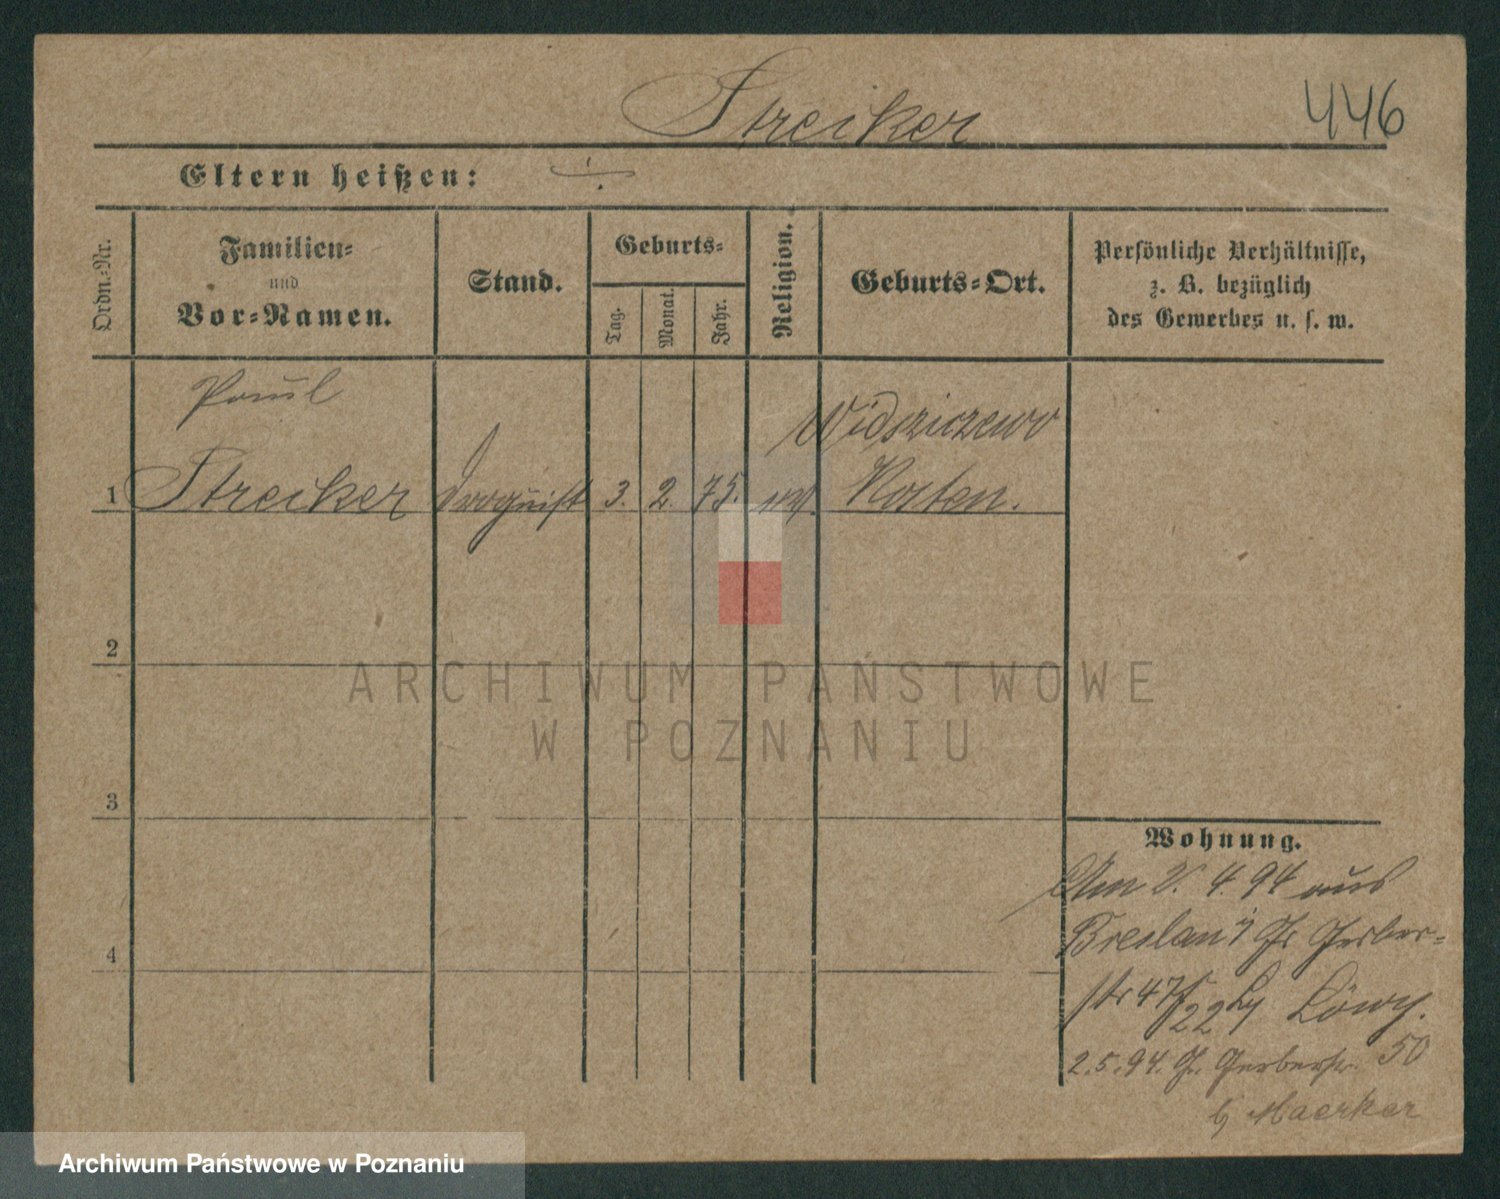 Streiker
446
Eltern heißen: ÷
Ordn.-Nr.
Familien-
und
Vor-Namen.
Stand.
Geburts-
Tag.
Monat.
Jahr.
Religion.
Geburts-Ort.
Persönliche Verhältnisse,
z. B. bezüglich
des Gewerbes u. s. w.
Paul
Widsziczewo
1 Streiker Droguist 3. 2. 75. Kosten.
2
3
4
Wohnung.
Am 2. 4. 94 aus
Breslau Gr Gerber-
str 47 Löwy.
2. 5. 94. Gr. Gerberstr. 50
b/ Maerker
ARCHIWUM PAŃSTWOWE
W POZNANIU
Archiwum Państwowe w Poznaniu